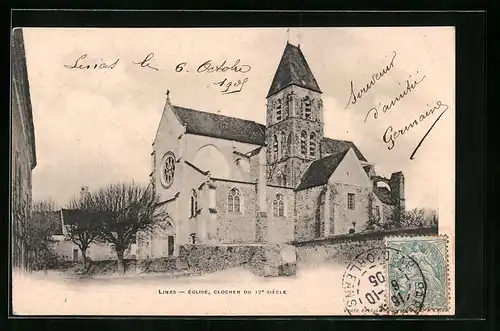 Linas le 6. Octobre
1905
Souvenir
d'amitié
Germaine
LINAS — ÉGLISE, CLOCHER DU 12e SIÈCLE
ORLEANS
10
05